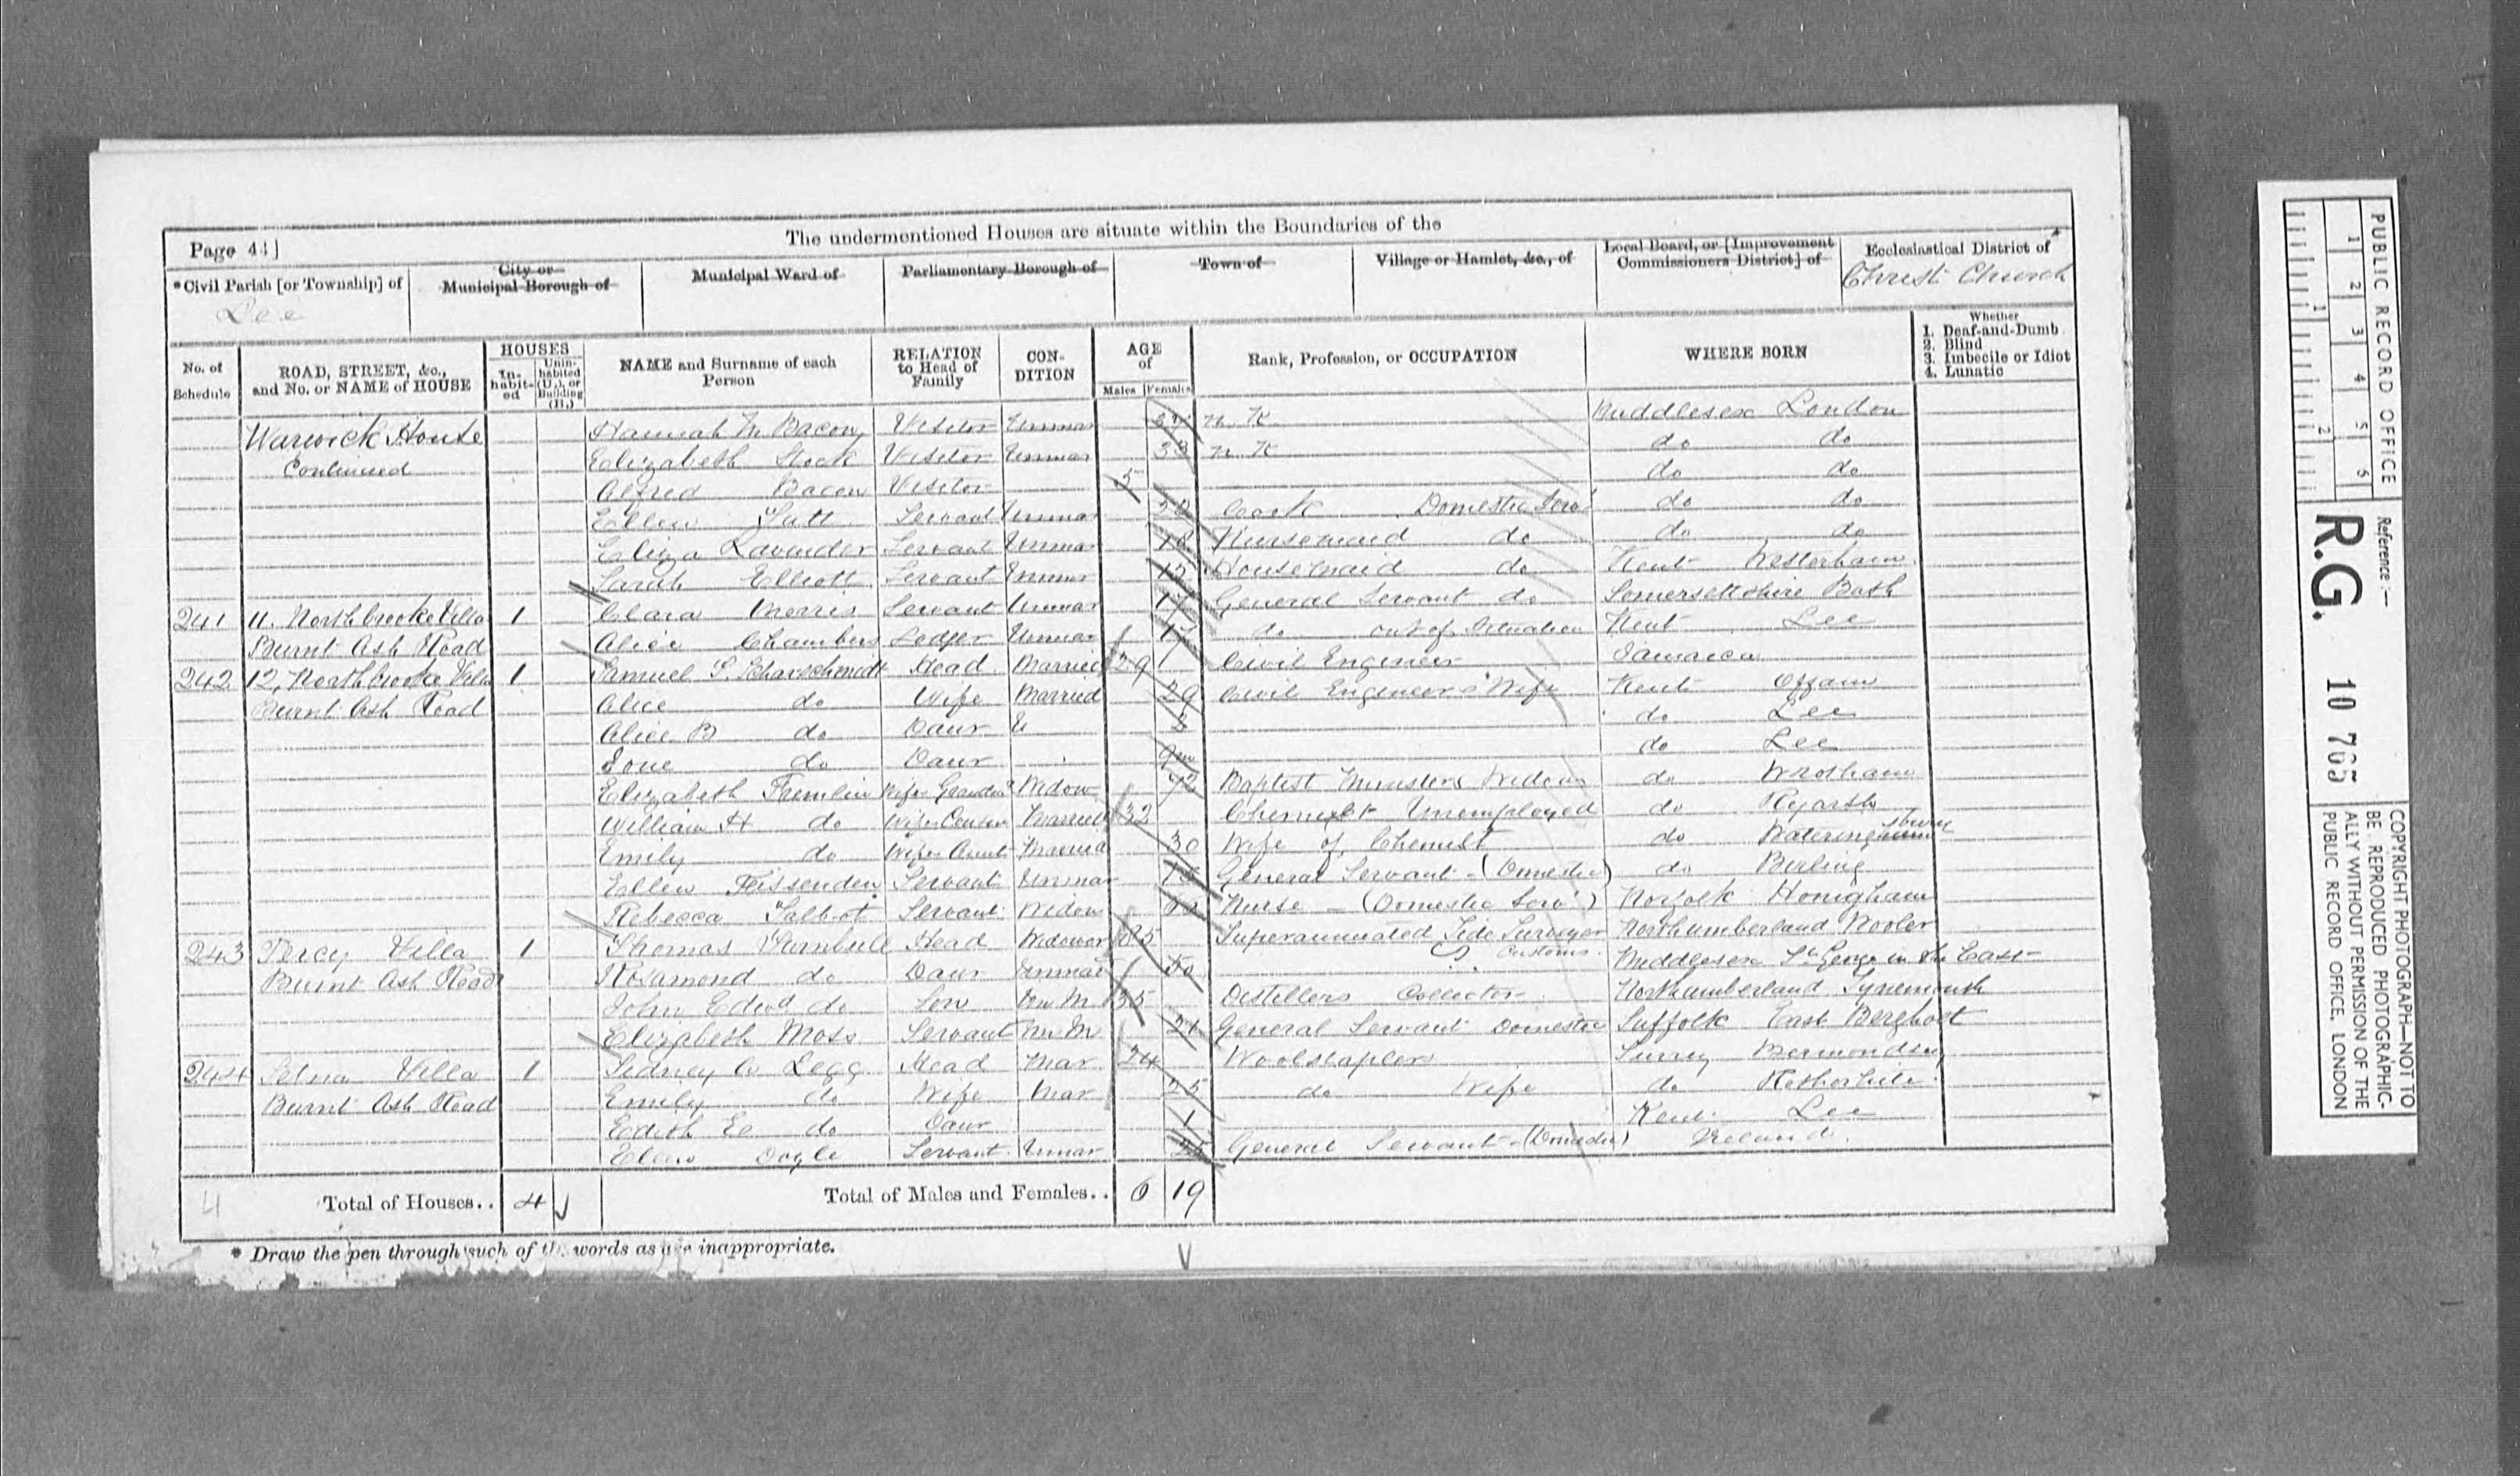 Page 44]
The undermentioned Houses are situate within the Boundaries of the
*Civil Parish [or Township] of
Lee
City or Municipal Borough of
Municipal Ward of
Parliamentary Borough of
Town of
Village or Hamlet, &c., of
Local Board, or [Improvement Commissioners District] of
Ecclesiastical District of
Christ Church
No. of Schedule
ROAD, STREET, &c., and No. or NAME of HOUSE
HOUSES
In-habit-ed
Unin-habited (U.), or Building (B.)
NAME and Surname of each Person
RELATION to Head of Family
CON-DITION
AGE of
Males Females
Rank, Profession, or OCCUPATION
WHERE BORN
Whether
1. Deaf-and-Dumb
2. Blind
3. Imbecile or Idiot
4. Lunatic
Warwick House Hannah M Bacon Visitor Unmar n. K Middlesex London
Continued Elizabeth Stock Visitor Unmar 33 n. K do do
Alfred Bacon Visitor 5 do do
Ellen Servant Unmar Cook Domestic Serv do do
Eliza Lavender Servant Unmar 18 Nursemaid do do do
Sarah Elliott Servant Unmar 15 Housemaid do Kent Westerham
241 11. Northbrooke Villa 1 Clara Morris Servant Unmar 17 General Servant do Somersetshire Bath
Burnt Ash Road Alice Chambers Lodger Unmar 17 do out of Situation Kent Lee
242 12, Northbrooke Villa 1 Samuel S. Scharschmidt Head Married 29 Civil Engineer Jamaica
Burnt Ash Road Alice do Wife Married 29 Civil Engineer's Wife Kent Offam
Alice B do Daur U do Lee
do Daur 9m do Lee
Elizabeth Fremlin Wifes Widow 72 Baptist Ministers Widow do Wrotham
William H do Wifes Married 32 Chemist Unemployed do Ryarsh
Emily do Wifes Married 30 Wife of Chemist do Wateringbury
Ellen Fissenden Servant Unmar General Servant - (Domestic) do Birling
Rebecca Talbot Servant Widow Nurse - (Domestic Serv) Norfolk Honigham
243 Percy Villa 1 Thomas Turnbull Head Widower 85 Superannuated Tide Surveyor Customs Northumberland Wooler
Burnt Ash Road Rosamond do Daur Unmar 50 Middlesex St George in the East
John Edwd do Son Un M 35 Distillers Collector Northumberland Tynemouth
Elizabeth Moss Servant Un M 21 General Servant Domestic Suffolk East Bergholt
244 Selna Villa 1 Sidney C Legg Head Mar 24 Woolstaplers Surrey Bermondsey
Burnt Ash Road Emily do Wife Mar 25 do Wife do Rotherhite
Edith E do Daur 1 Kent Lee
Ellen Doyle Servant Unmar General Servant - (Domestic) Ireland
4 Total of Houses.. 4 Total of Males and Females.. 6 19
* Draw the pen through such of the words as are inappropriate.
PUBLIC RECORD OFFICE
1 2 3 4 5 6
1 2
Reference :-
R.G. 10 765
COPYRIGHT PHOTOGRAPH—NOT TO
BE REPRODUCED PHOTOGRAPHIC-
ALLY WITHOUT PERMISSION OF THE
PUBLIC RECORD OFFICE, LONDON